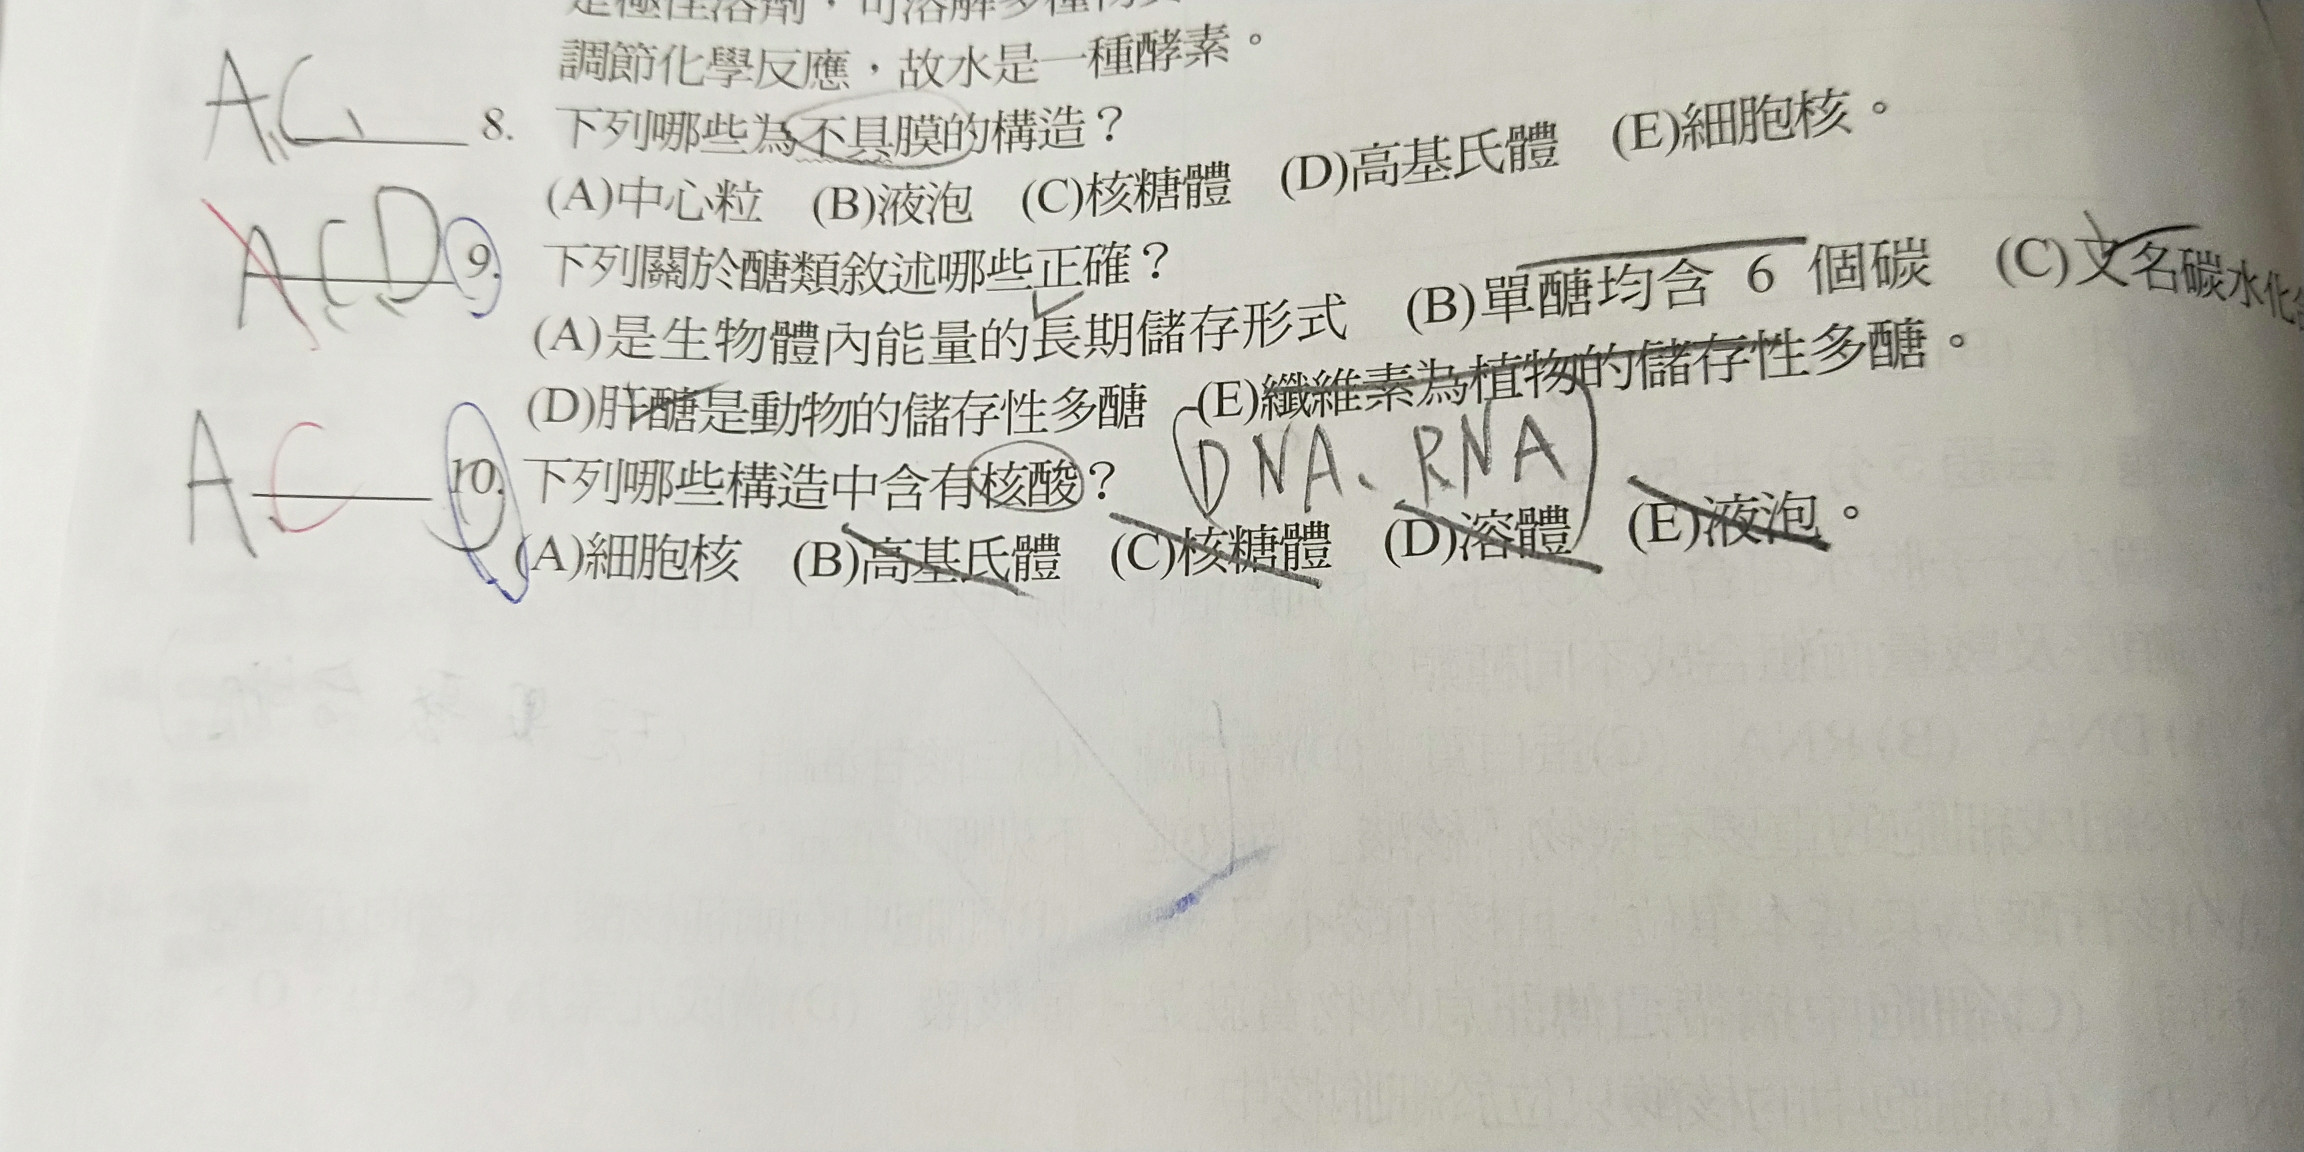 調節化學反應，故水是一種酵素。
AC 8. 下列哪些為不具膜的構造？
(A)中心粒 (B)液泡 (C)核糖體 (D)高基氏體 (E)細胞核。
ACD 9. 下列關於醣類敘述哪些正確？
(A)是生物體內能量的長期儲存形式 (B)單醣均含 6 個碳 (C)又名碳水化
(D)肝醣是動物的儲存性多醣 (E)纖維素為植物的儲存性多醣。
AC 10. 下列哪些構造中含有核酸？ DNA、RNA
(A)細胞核 (B)高基氏體 (C)核糖體 (D)溶體 (E)液泡。